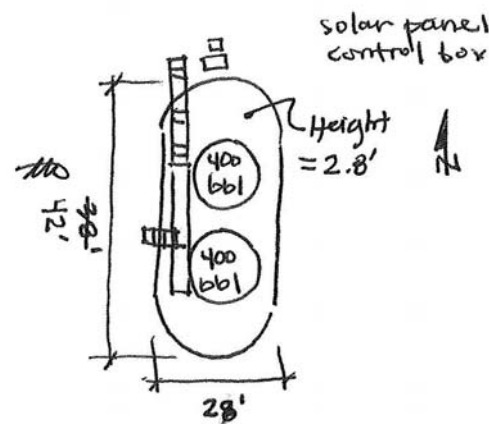 solar panel
control box
Height
= 2.8'
N
400
bbl
400
bbl
38'
42'
28'